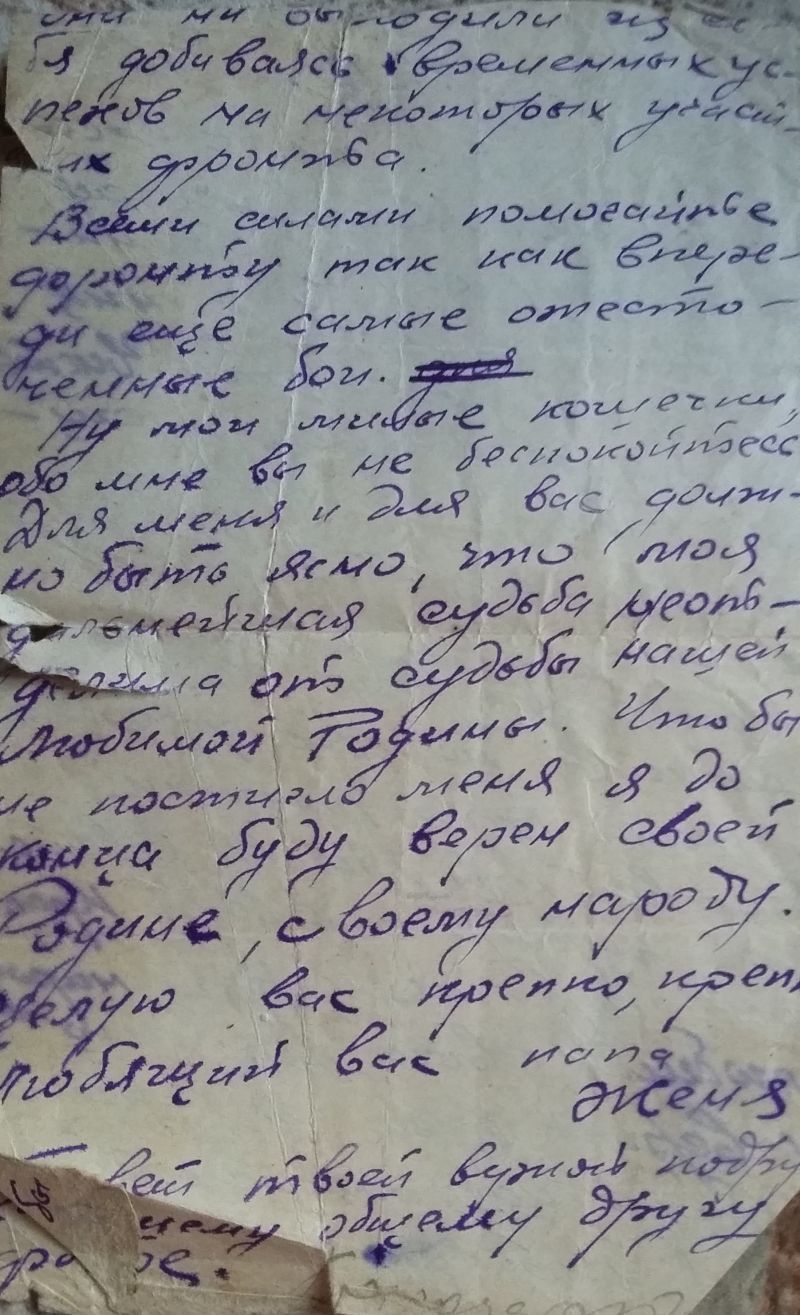 они ни выходили из се-
бя добиваясь временных ус-
пехов на некоторых участ-
их фронтва.
Всеми силами помогайтье
фронтву так как впере-
ди еще самые ожесто-
ченные бои.
Ну мои милые кошечки,
обо мне вы не беспокойтесь
Для меня и для вас долж-
но быть ясно, что моя
дальнейшая судьба неот-
делима от судьбы нашей
любимой Родины. Что бы
не постигло меня я до
конца буду верен своей
Родине, своему народу.
Целую вас крепко, креп
Любящий вас папа
Женя
твоей подру
общему другу